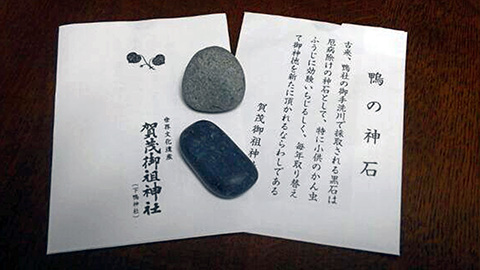 鴨の神石
古来、鴨社の御手洗川で採取される黒石は
厄病除けの神石として、特に小供のかん虫
ふうじに効験いちじるしく、毎年取り替え
て御神徳を新たに頂かれるならわしである
賀茂御祖神
世界文化遺産
賀茂御祖神社
(下鴨神社)